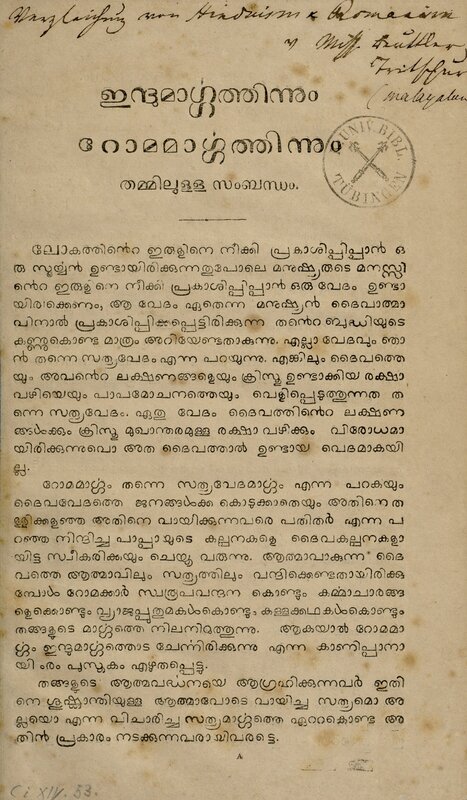 Vergleichung von Hinduism & Romanism
v Miss. Beuttler
Tritschur
(Malayalam
ഇന്ദുമാൎഗ്ഗത്തിന്നും
റോമമാൎഗ്ഗത്തിന്നും
തമ്മിലുള്ള സംബന്ധം.
UNIV. BIBL.
TÜBINGEN
ലോകത്തിന്റെ ഇരുളിനെ നീക്കി പ്രകാശിപ്പിപ്പാൻ ഒ
രു സൂൎയ്യൻ ഉണ്ടായിരിക്കുന്നതുപോലെ മനുഷ്യരുടെ മനസ്സി
ന്റെ ഇരുളിനെ നീക്കി പ്രകാശിപ്പിപ്പാൻ ഒരു വേദം ഉണ്ടാ
യിരിക്കെണം, ആ വേദം ഏതെന്ന മനുഷ്യൻ ദൈവാത്മാ
വിനാൽ പ്രകാശിപ്പിക്കപ്പെട്ടിരിക്കുന്ന തന്റെ ബുദ്ധിയുടെ
കണ്ണുകൊണ്ട മാത്രം അറിയേണ്ടതാകുന്നു. എല്ലാ വേദവും ഞാ
ൻ തന്നെ സത്യവേദം എന്ന പറയുന്നു. എങ്കിലും ദൈവത്തെ
യും അവന്റെ ലക്ഷണങ്ങളെയും ക്രിസ്തു ഉണ്ടാക്കിയ രക്ഷാ
വഴിയെയും പാപമോചനത്തെയും വെളിപ്പെടുത്തുന്നത ത
ന്നെ സത്യവേദം. ഏതു വേദം ദൈവത്തിന്റെ ലക്ഷണ
ങ്ങൾക്കും ക്രിസ്തു മുഖാന്തരമുള്ള രക്ഷാ വഴിക്കും വിരോധമാ
യിരിക്കുന്നുവൊ അത ദൈവത്താൽ ഉണ്ടായ വേദമാകയി
ല്ല.
റോമമാൎഗ്ഗം തന്നെ സത്യവേദമാൎഗ്ഗം എന്ന പറകയും
ദൈവവേദത്തെ ജനങ്ങൾക്ക കൊടുക്കാതെയും അതിനെ ത
ള്ളിക്കളഞ്ഞ അതിനെ വായിക്കുന്നവരെ പതിതർ എന്ന പ
റഞ്ഞ നിന്ദിച്ച പാപ്പായുടെ കല്പനകളെ ദൈവകല്പനകളാ
യിട്ട സ്വീകരിക്കയും ചെയ്തു വരുന്നു. ആത്മാവാകുന്ന ദൈ
വത്തെ ആത്മാവിലും സത്യത്തിലും വന്ദിക്കെണ്ടതായിരിക്കു
മ്പോൾ റോമക്കാർ സ്വരൂപവന്ദന കൊണ്ടും കൎമ്മാചാരങ്ങ
ളെക്കൊണ്ടും വ്യാജപ്പുതുമകൾകൊണ്ടും, കള്ളക്കഥകൾകൊണ്ടും
തങ്ങളുടെ മാൎഗ്ഗത്തെ നിലനിറുത്തുന്നു. ആകയാൽ റോമമാ
ൎഗ്ഗം ഇന്ദുമാൎഗ്ഗത്തൊട ചേൎന്നിരിക്കുന്നു എന്ന കാണിപ്പാനാ
യി ൟ പുസ്തകം എഴുതപ്പെട്ടു.
തങ്ങളുടെ ആത്മവൎദ്ധനയെ ആഗ്രഹിക്കുന്നവർ ഇതി
നെ ശുഷ്കാന്തിയുള്ള ആത്മാവോടെ വായിച്ച സത്യമൊ അ
ല്ലയൊ എന്ന വിചാരിച്ച സത്യമാൎഗ്ഗത്തെ ഏററകൊണ്ട അ
തിൻ പ്രകാരം നടക്കുന്നവരായിവരട്ടെ.
A
Ci XIV. 53.